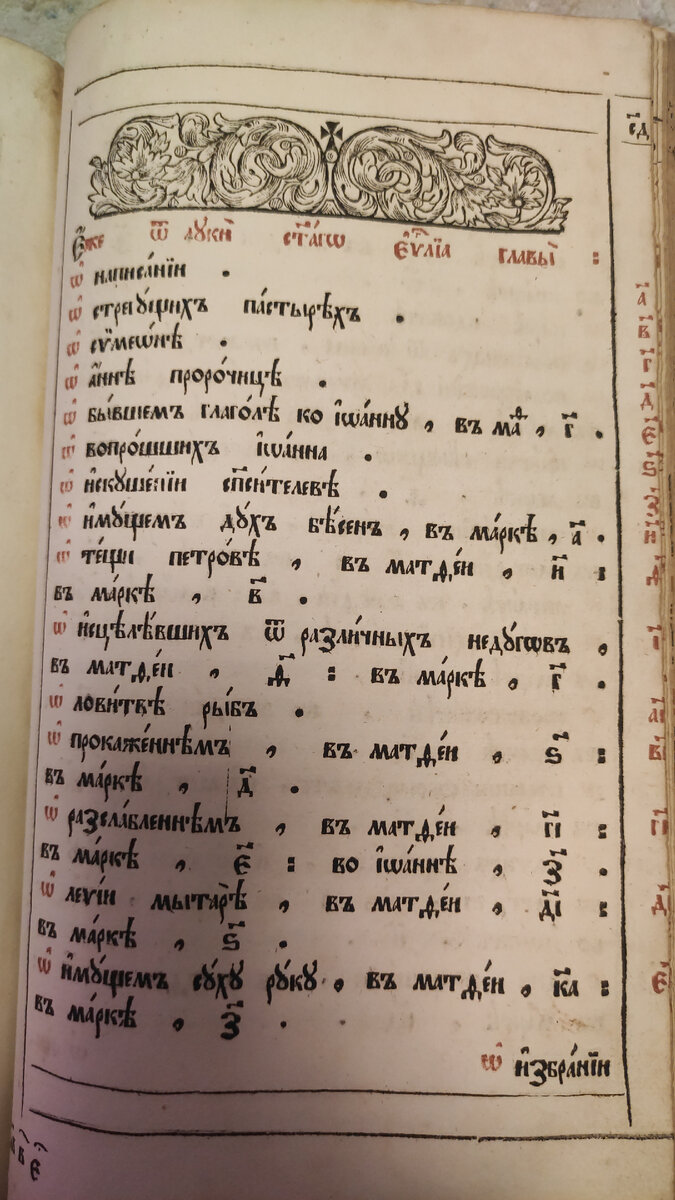 Е҆́же ѿ лꙋкѝ ст҃а́гѡ є҆ѵⷢ҇лїа главы̀ :
ѡ҆ написа́нїи .
ѡ҆ стрегꙋ́щихъ па́стырѣхъ .
ѡ҆ сѷмеѡ́нѣ .
ѡ҆ а҆́ннѣ проро́чицѣ .
ѡ҆ бы́вшемъ глаго́лѣ ко і҆ѡа́ннꙋ , въ маⷴ҇ , г҃ .
ѡ҆ вопро́шшихъ і҆ѡа́нна .
ѡ҆ и҆скꙋше́нїи сп҃си́телевѣ .
ѡ҆ и҆мꙋ́щемъ дꙋ́хъ бѣ́сенъ , въ ма́ркѣ , а҃ .
ѡ҆ те́щи петро́вѣ , въ матѳе́и , и҃ :
въ ма́ркѣ , в҃ .
ѡ҆ и҆сцѣлѣ́вшихъ ѿ разли́чныхъ недꙋ́гѡвъ ,
въ матѳе́и , ѳ҃ : въ ма́ркѣ , г҃ .
ѡ҆ лови́твѣ ры́бъ .
ѡ҆ прокаже́ннѣмъ , въ матѳе́и , ѕ҃ :
въ ма́ркѣ , д҃ .
ѡ҆ разсла́бленнѣмъ , въ матѳе́и , г҃і :
въ ма́ркѣ , є҃ : во і҆ѡа́ннѣ , з҃ .
ѡ҆ леѵі́и мытарѣ̀ , въ матѳе́и , д҃і :
въ ма́ркѣ , ѕ҃ .
ѡ҆ и҆мꙋ́щемъ сꙋ́хꙋ рꙋ́кꙋ , въ матѳе́и , к҃а :
въ ма́ркѣ , з҃ .
ѡ҆ и҆збра́нїи
а҃
в҃
г҃
д҃
є҃
ѕ҃
з҃
и҃
ѳ҃
і҃
а҃і
в҃і
г҃і